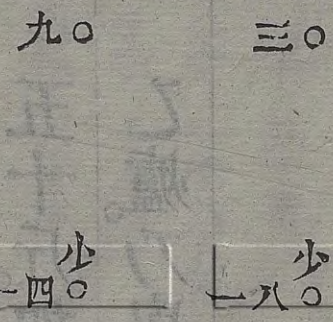 三〇
少
一八〇
九〇
少
一四〇